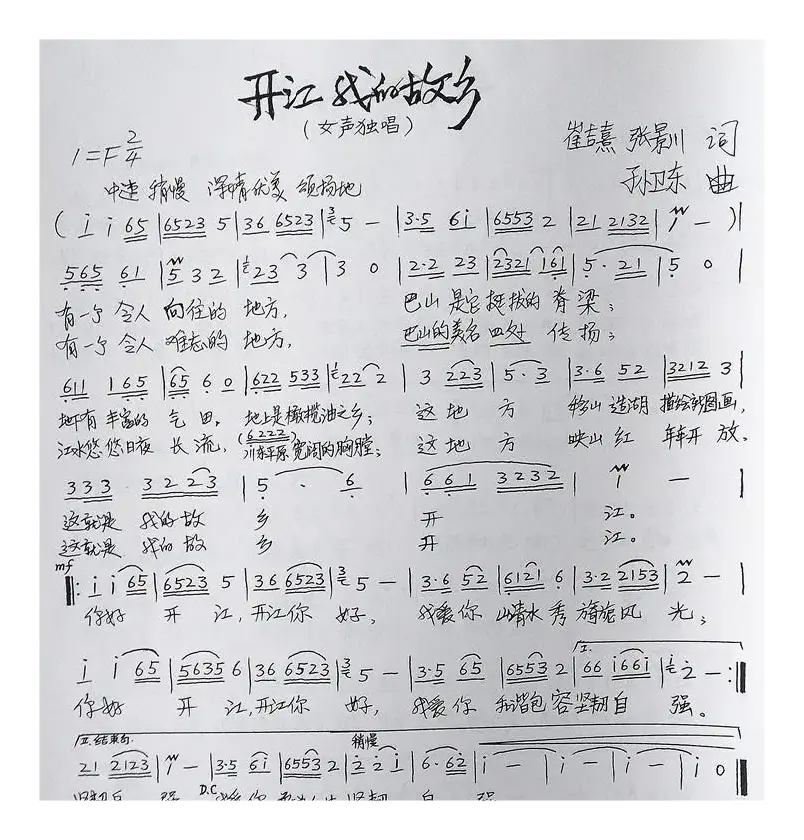 开江 我的故乡
（女声独唱）
1=F 2/4
崔吉熹 张景川 词
孙卫东 曲
中速 稍慢 深情优美 颂扬地
( i i 65 | 6523 5 | 36 6523 | 3 5 - | 3·5 6i | 6553 2 | 21 2132 | 1 - ) |
565 61 | 5 3 2 | 23 3 | 3 0 | 2·2 23 | 2321 161 | 5·21 | 5 0 |
有一个 令人 向往的 地方， 巴山 是它 挺拔的 脊梁；
有一个 令人 难忘的 地方， 巴山的美名 四处 传扬；
611 165 | 65 6 0 | 622 533 | 22 2 | 3 223 | 5·3 | 3·6 52 | 3212 3 |
地下有 丰富的 气 田， 地上是 橄榄油之乡； 这 地 方 移山 造湖 描绘新图画，
(6222)
江水悠 悠日夜 长 流， 川东平原 宽阔的胸膛； 这 地 方 映山 红 年年开 放。
333 3223 | 5 · 6 | 661 3232 | 1 - |
这就是 我的故 乡 开 江。
这就是 我的故 乡 开 江。
mf
‖: i i 65 | 6523 5 | 36 6523 | 3 5 - | 3·6 52 | 6121 6 | 3·2 2153 | 2 - |
你好 开 江，开江你 好， 我爱你 山清水 秀 旖旎风 光；
I.
i i 65 | 5635 6 | 36 6523 | 3 5 - | 3·5 65 | 6553 2 | 66 i66i | 2 - :‖
你好 开 江，开江你 好， 我爱你 和谐包 容坚韧自 强。
II. 结束句 稍慢
21 2123 | 1 - | 3·5 6i | 6553 2 | 2 2 i | 6·62 | i - | i - | i - | i 0 ‖
D.C